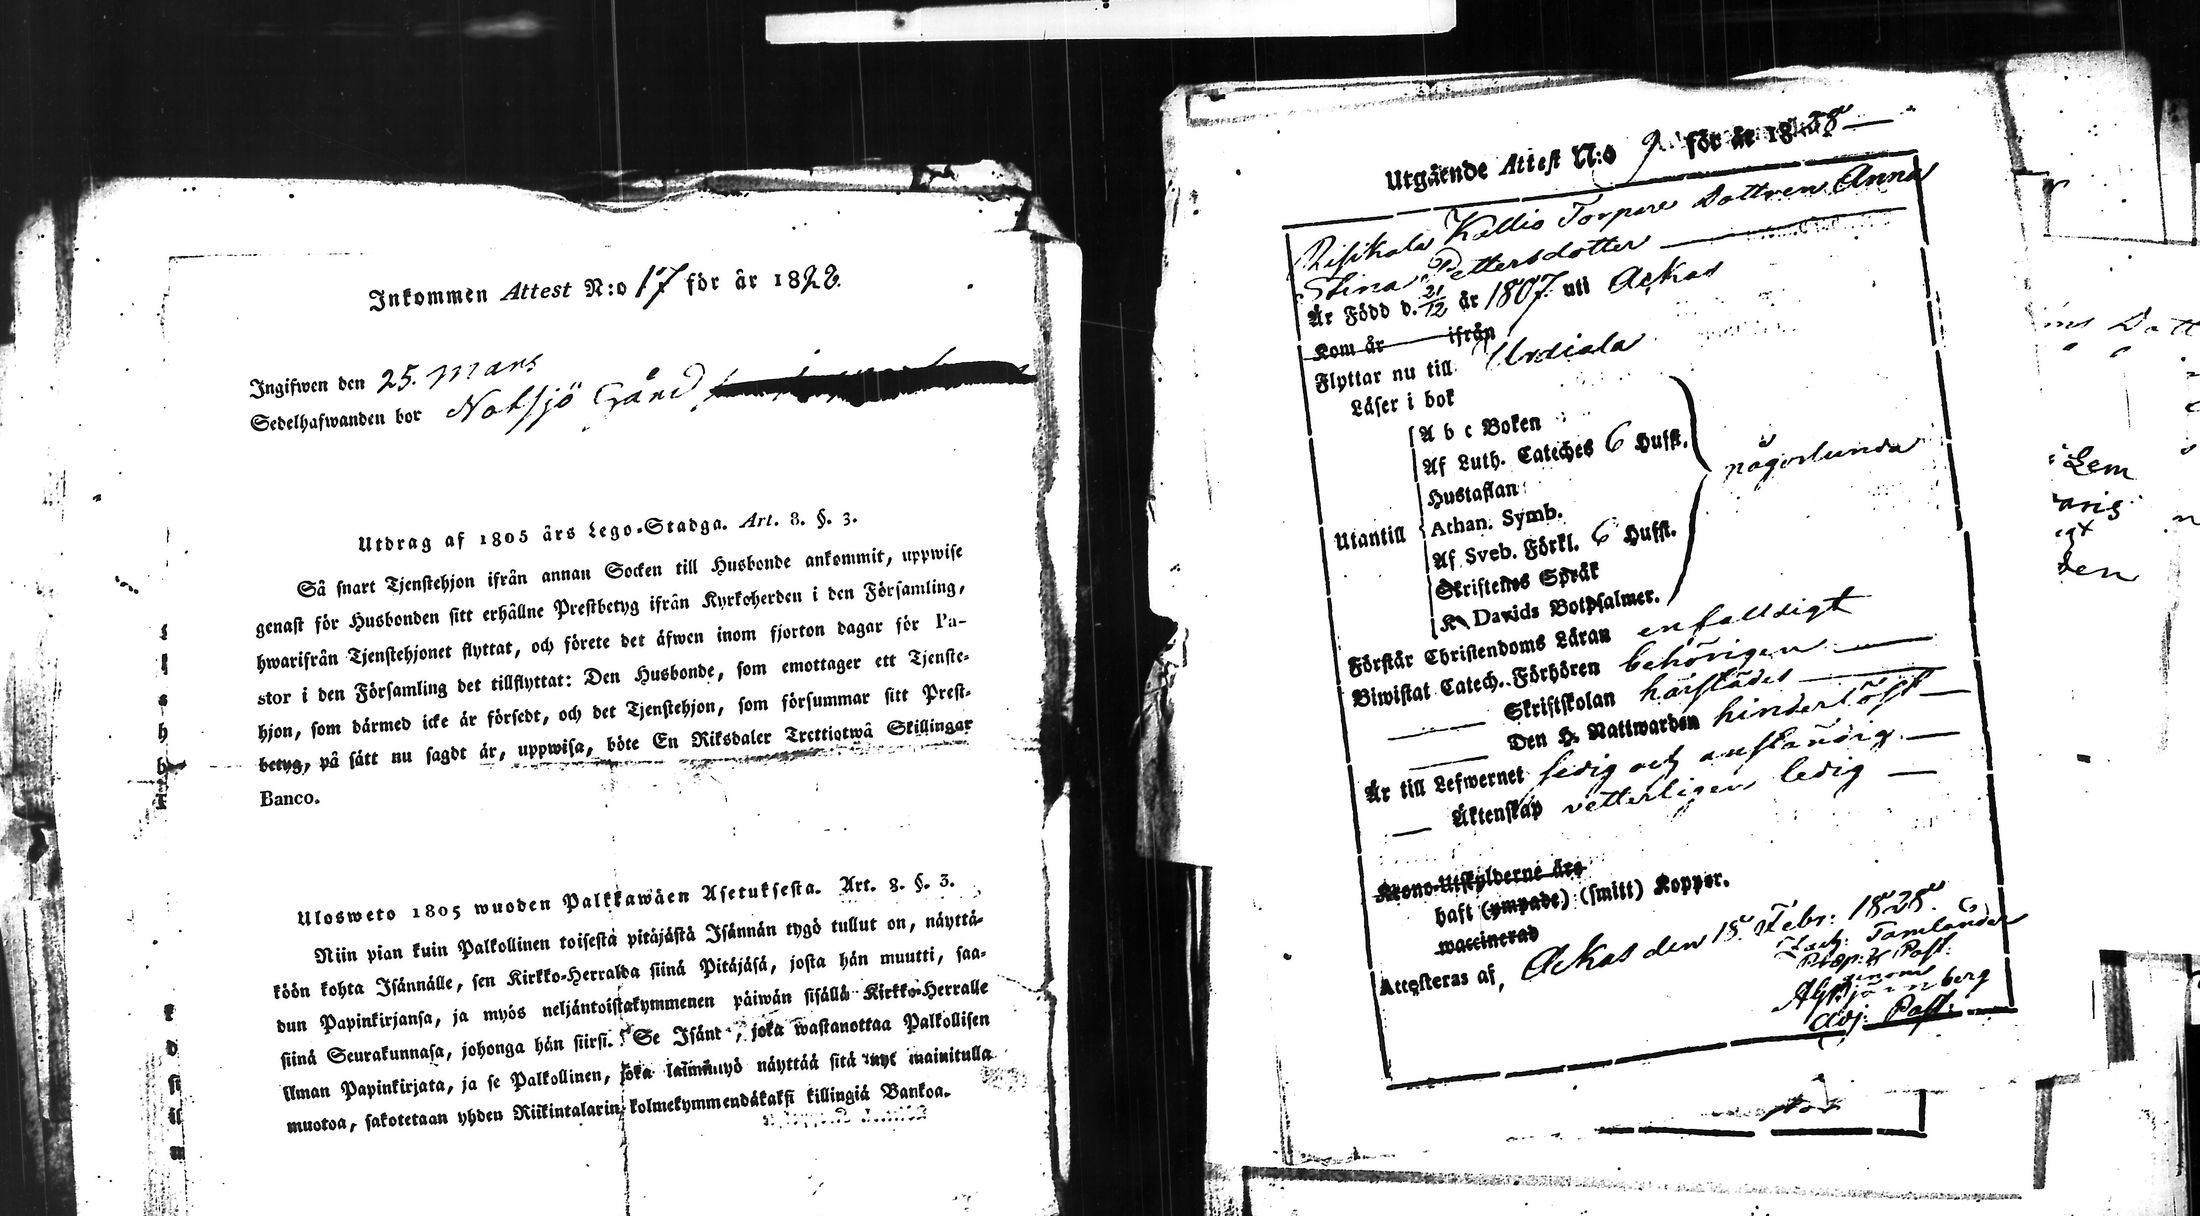 Inkommen Attest N:o 17 för år 1828.
Ingifwen den 25. Mars
Sedelhafwanden bor Notsjö Gård
Utdrag af 1805 års Lego-Stadga. Art. 8. §. 3.
Så snart Tjenstehjon ifrån annan Socken till Husbonde ankommit, uppwise
genast för Husbonden sitt erhållne Prestbetyg ifrån Kyrkoherden i den Församling,
hwarifrån Tjenstehjonet flyttat, och förete det äfwen inom fjorton dagar för Pa-
stor i den Församling det tillflyttat: Den Husbonde, som emottager ett Tjenste-
hjon, som därmed icke är försedt, och det Tjenstehjon, som försummar sitt Prest-
betyg, på sätt nu sagdt är, uppwisa, böte En Riksdaler Trettiotwå Skillingar
Banco.
Ulosweto 1805 wuoden Palkkawäen Asetuksesta. Art. 8. §. 3.
Niin pian kuin Palkollinen toisesta pitäjästä Isännän tygö tullut on, näyttä-
köön kohta Isännälle, sen Kirkko-Herralda siinä Pitäjäsä, josta hän muutti, saa-
dun Papinkirjansa, ja myös neljäntoistakymmenen päiwän sisällä Kirkko-Herralle
siinä Seurakunnasa, johonga hän siirsi. Se Isänt, joka wastanottaa Palkollisen
ilman Papinkirjata, ja se Palkollinen, joka laiminlyö näyttää sitä nyt mainitulla
muotoa, sakotetaan yhden Riikintalarin kolmekymmendäkaksi killingiä Bankoa.
Utgående Attest N:o 9 för år 1828
Risikala Kallio Torpare Dottren Anna
Stina Pettersdotter
Är Född d. 21/12 år 1807 uti Ackas
Kom år ifrån
Flyttar nu till Urdiala
Läser i bok
A b c Boken
Af Luth. Cateches 6 Hufst.
Hustaflan
någorlunda
Athan. Symb.
Utantill
Af Sveb. Förkl. 6 Hufst.
Skriftenes Språk
K. Davids Botpsalmer.
Förstår Christendoms Läran enfaldigt
Biwistat Catech. Förhören behörigen
Skriftskolan härstädes
Den H. Nattwarden hinderlöst
Är till Lefwernet sedig och anständig
Äktenskap vetterligen ledig
Krono-Utskylderne äro
haft (ympade) (smitt) Koppor.
waccinerad
Attesteras af, Ackas den 18 Febr: 1828.
Zach: Tamlander
Præp: & Past:
genom
Björnberg
Adj: Past: